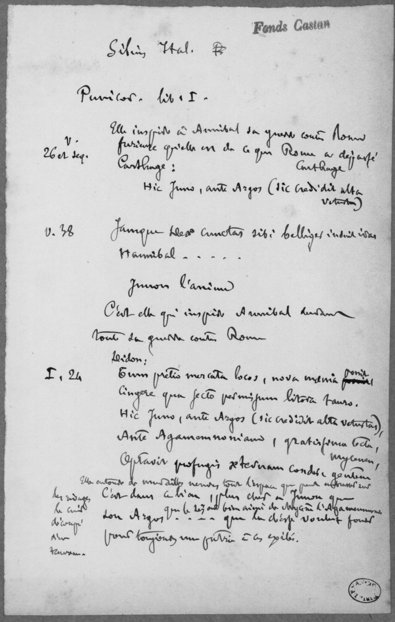 Fonds Castan
Silius Ital.
Punicor. lib. I.
Elle inspire à Annibal sa guerre contre Rome
v. furieuse qu'elle est de ce que Rome a dépassé
26 et seq. Carthage : Carthage
Hic Juno, ante Argos (sic credidit alta
vetustas)
v. 38 Jamque deae cunctas sibi belliger induit iras
Hannibal . . . . .
Junon l'anime
C'est elle qui inspire Annibal durant
toute sa guerre contre Rome
Didon :
I, 24 Cum pretio mercata locos, nova moenia ponit,
Cingere qua secto permissum litora tauro.
Hic Juno, ante Argos (sic credidit alta vetustas),
Ante Agamemnoniam, gratissima tecta, Mycenen,
Optavit profugis aeternam condere gentem
Elle entoure de murailles neuves tout l'espace que
les rivages C'est dans ce lieu, plus cher à Junon que
que le séjour bien aimé de Mycènes d'Agamemnon
son Argos . . . . que la déesse voulut fonder
pour toujours une patrie à ces exilés.